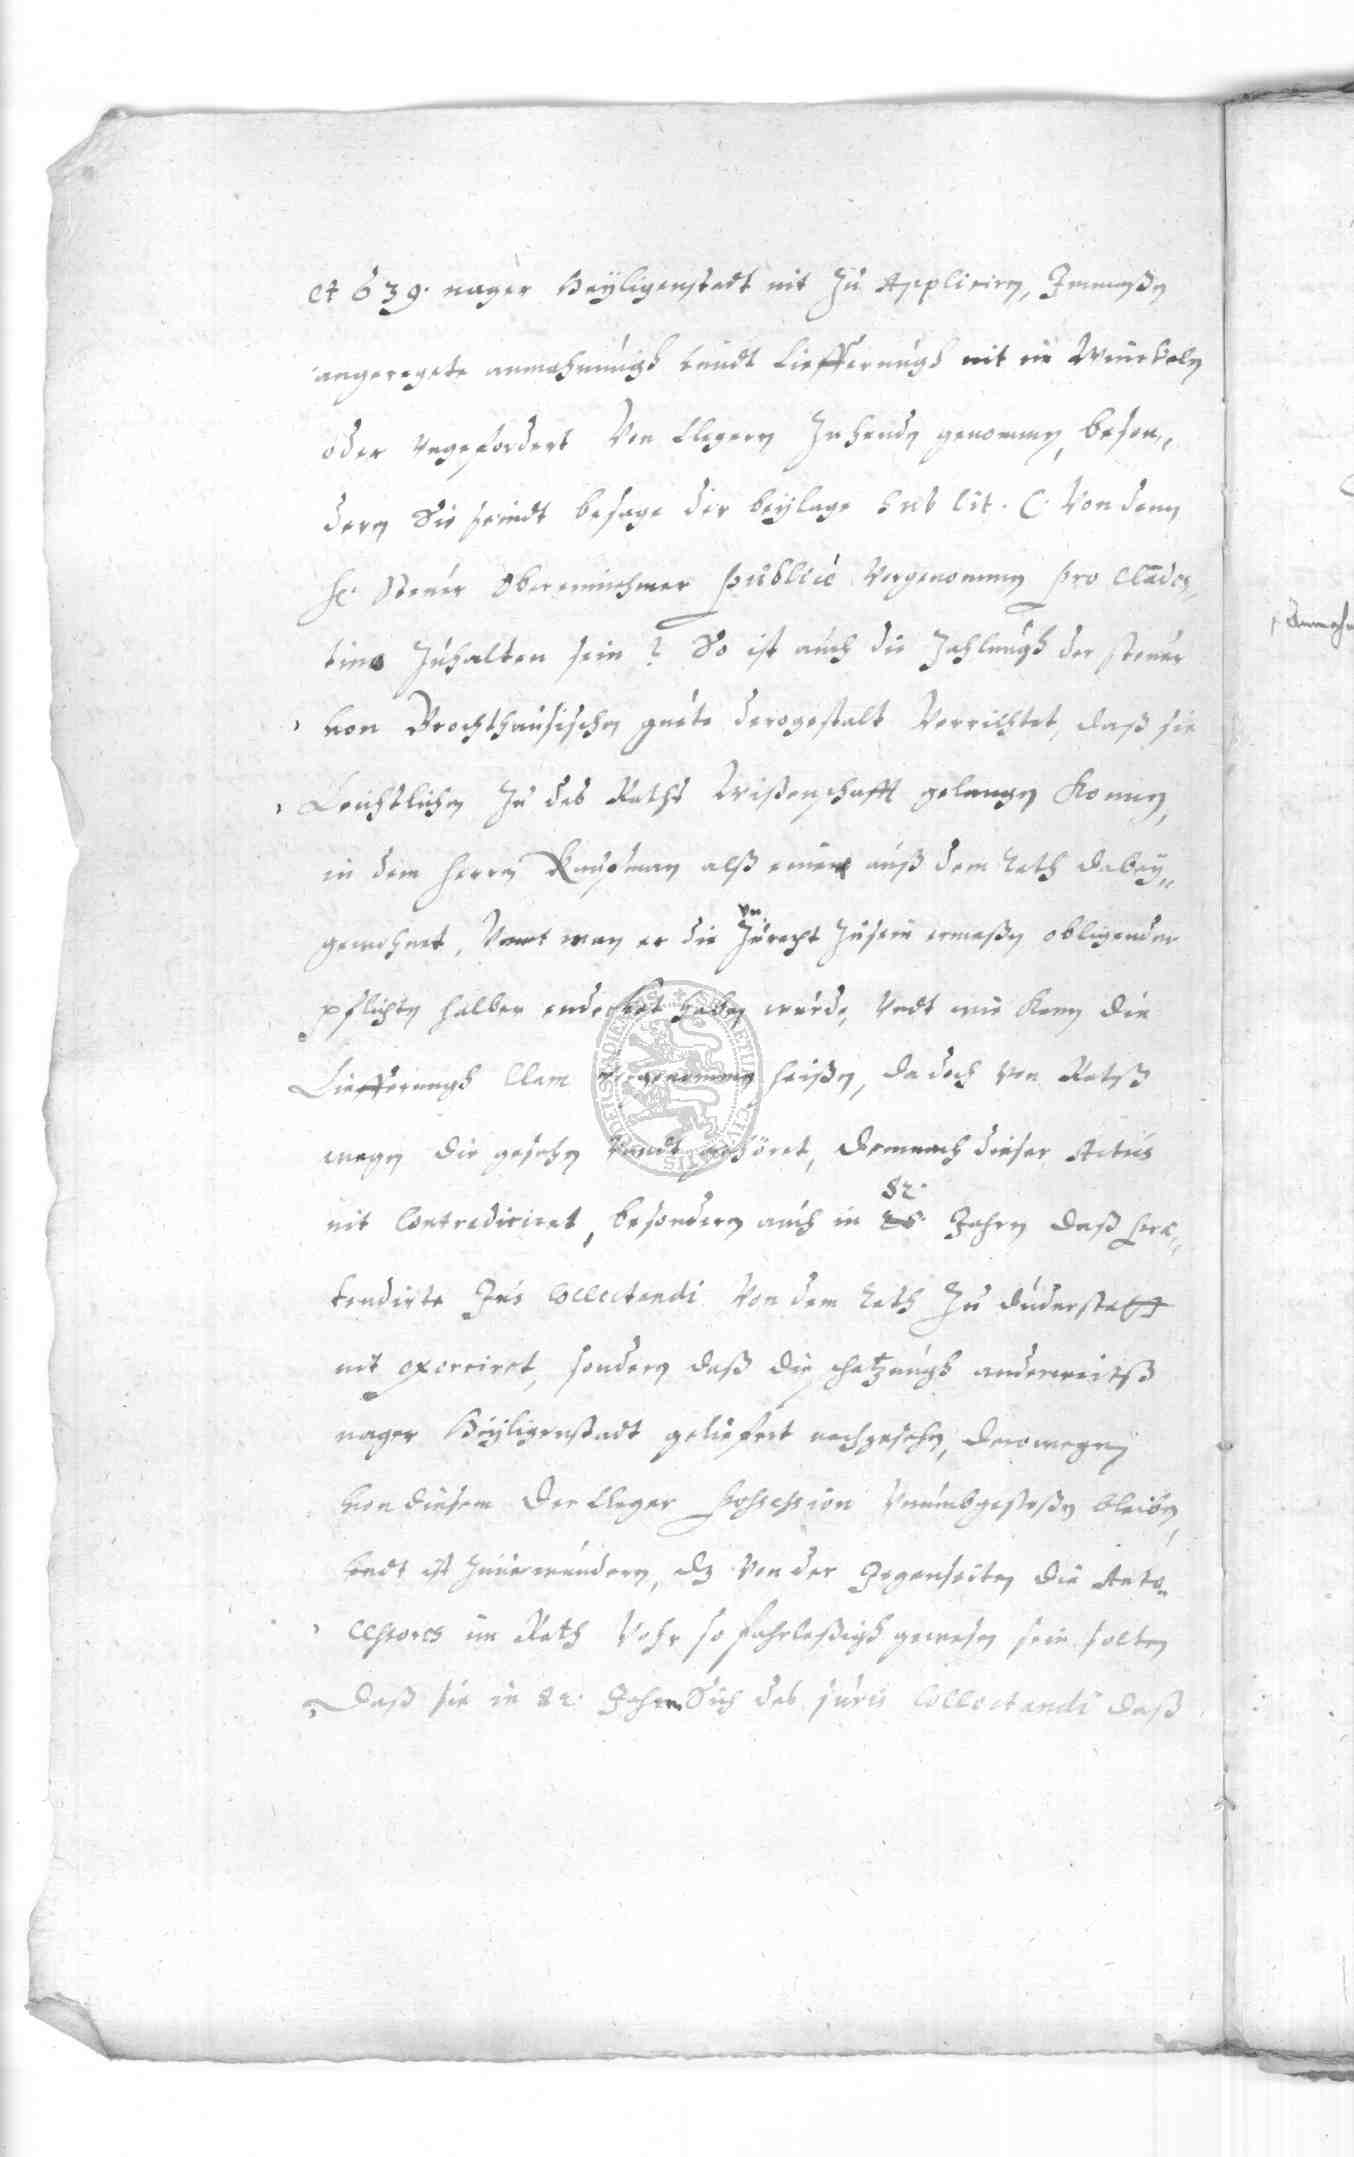 et 639. nager Heyligenstadt nit zu Appliciren, Immaßen
angeregete anmahnungh undt Lieffernungh nit in Winkeln
oder ungefordert von Clegern zuhanden genommen, beson„
dern Sie seindt besage der beylage sub lit. C. von denn
H. Steuer Obereinnehmer publicè vorgenommen pro Clandes„
tino zuhalten sein? So ist auch die Zahlungh der steuer
von Brochthausischen guete derogestalt verrichtet, daß sie
Leichtlichen zu des Raths Wißenschafft gelangen konnen,
in dem Herrn Kaufman alß einer auß dem Rath dabey„
gewohnet, wan er die vn
Zurecht zusein ermaßen obligender
pflichten halber endecket haben wurde, undt wie kann die
Liefferungh Clam vorgenommen heißen, da doch von Raths
wegen die gesehen undt gehöret, demnach dieser Actus
nit Contradiciret, besondern auch in 82. Jahren daß præ„
tendirte Jus Collectandi von dem Rath zu Duderstatt
nit exerciret, sondern daß die schatzungh anderweits
nager Heyligenstadt geliefert nachgesehen, derowegen
von diesem der Cleger Possession unumbgestoßen bleiben,
undt ist zuverwundern, dz von der Gegenseiten die Ante„
cessores im Rath so fahrleßigh gewesen sein solten
Daß sie in 82. Jahren Sich des juris Collectandi daß